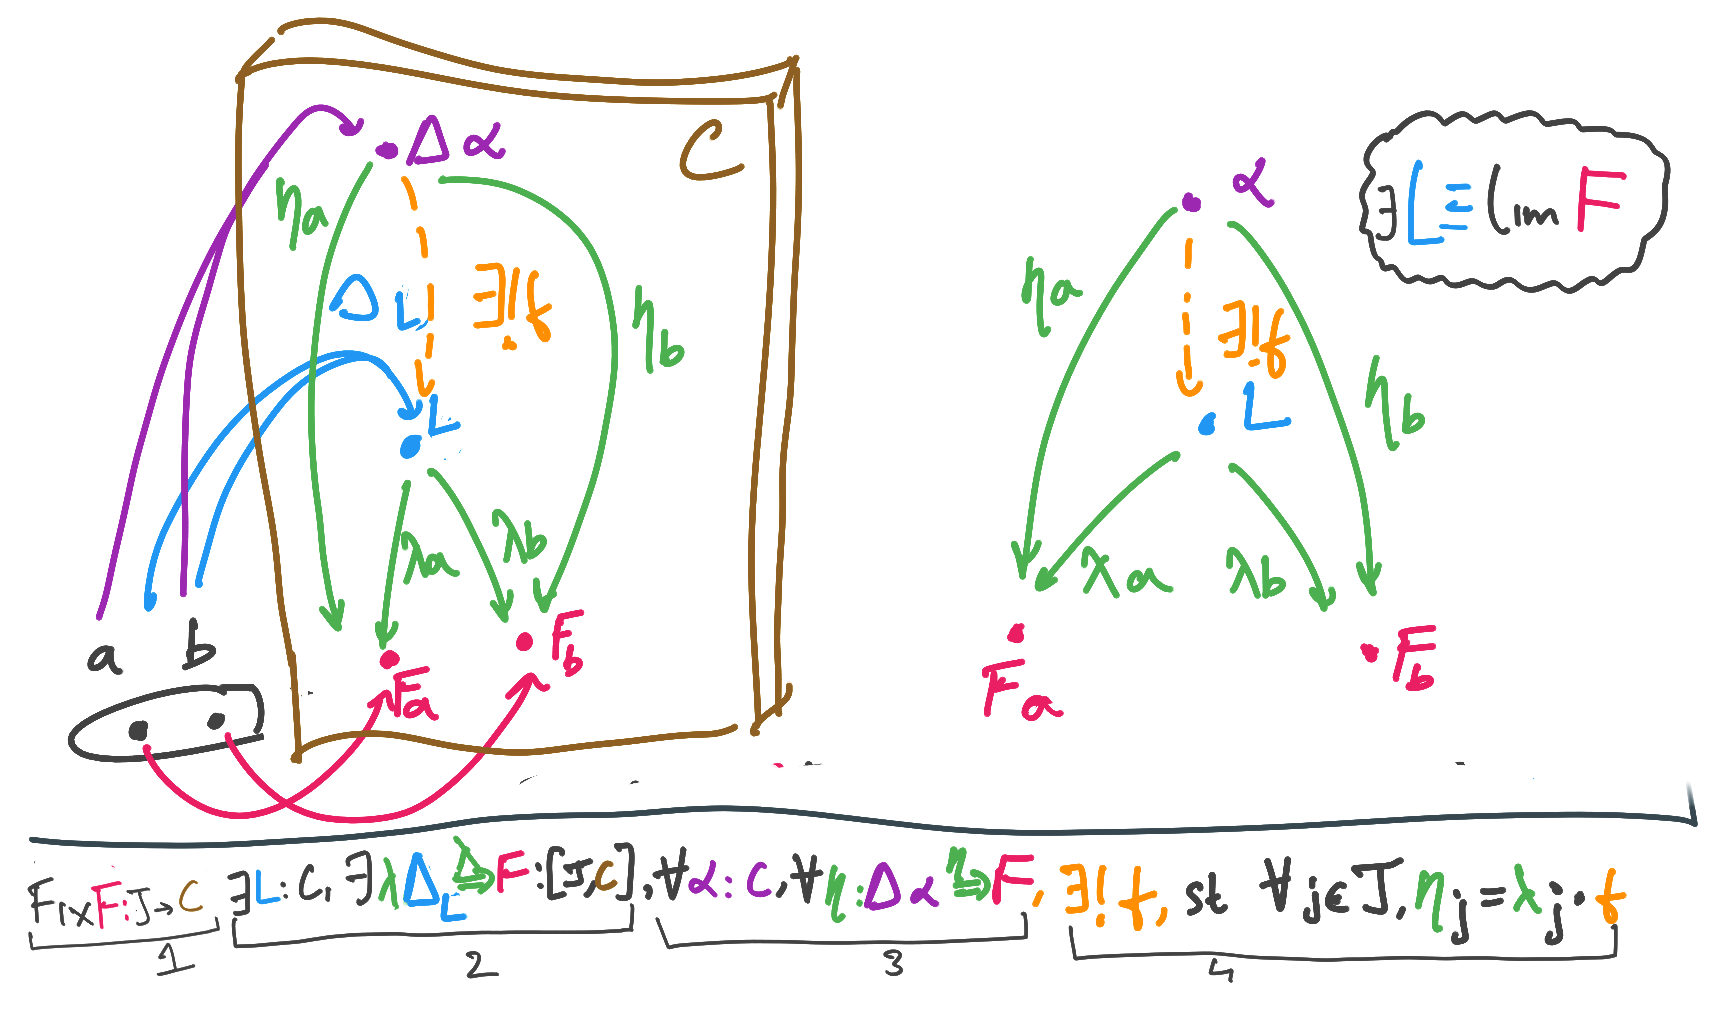 Δ α
C
ηa
Δ L
∃!f
ηb
L
λa
λb
a b
Fa
Fb
α
∃ L ≡ lim F
ηa
∃!f
L
ηb
λa
λb
Fa
Fb
Fix F: J → C ∃L: C, ∃λ Δ_L ⇒^λ F: [J, C], ∀α: C, ∀η: Δα ⇒^η F, ∃! f, st ∀j∈J, ηj = λj · f
1 2 3 4